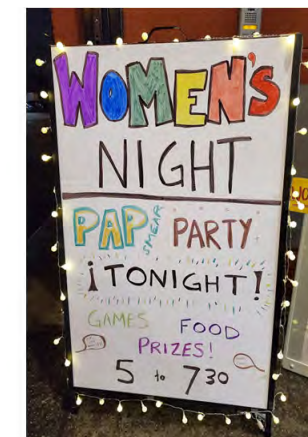 WOMEN'S
NIGHT
PAP SMEAR PARTY
¡TONIGHT!
GAMES FOOD
PRIZES!
5 to 730